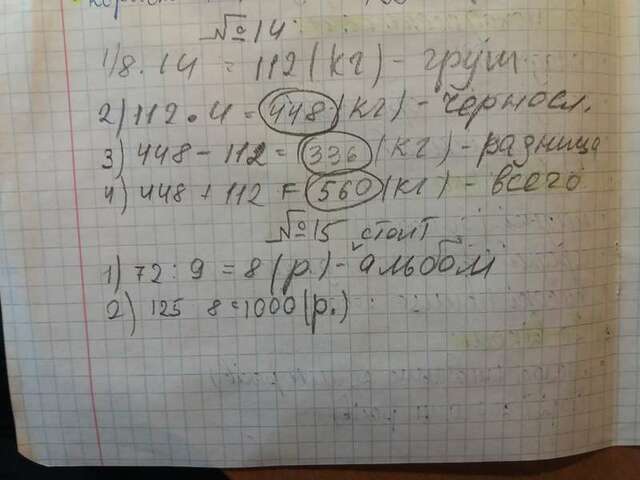 №14.
1) 8 · 14 = 112 (кг) - груш
2) 112 · 4 = 448 (кг) -
3) 448 - 112 = 336 (кг) - разница
4) 448 + 112 = 560 (кг) - всего
№15
1) 72 : 9 = 8 (р) - стоит альбом
2) 125 8 = 1000 (р.)